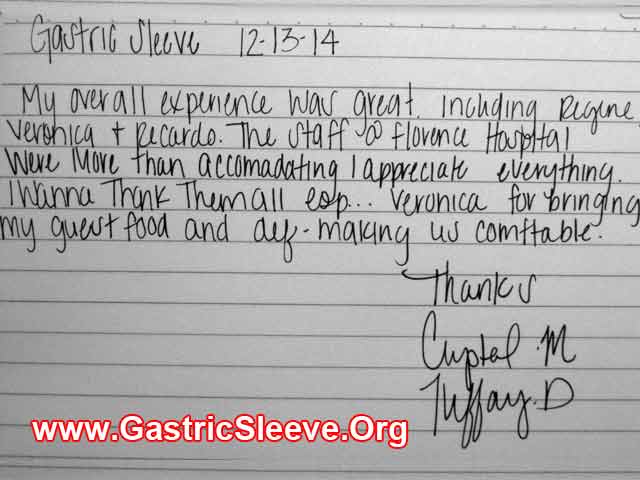 Gastric Sleeve 12-13-14
My overall experience was great. Including Regene,
Veronica + Recardo. The staff @ Florence Hospital
were more than accomadating I appreciate everything.
I wanna Thank Them all esp... Veronica for bringing
my guest food and def-making us comftable.
Thanks
Crystal .M
Tiffay. D
www.GastricSleeve.Org